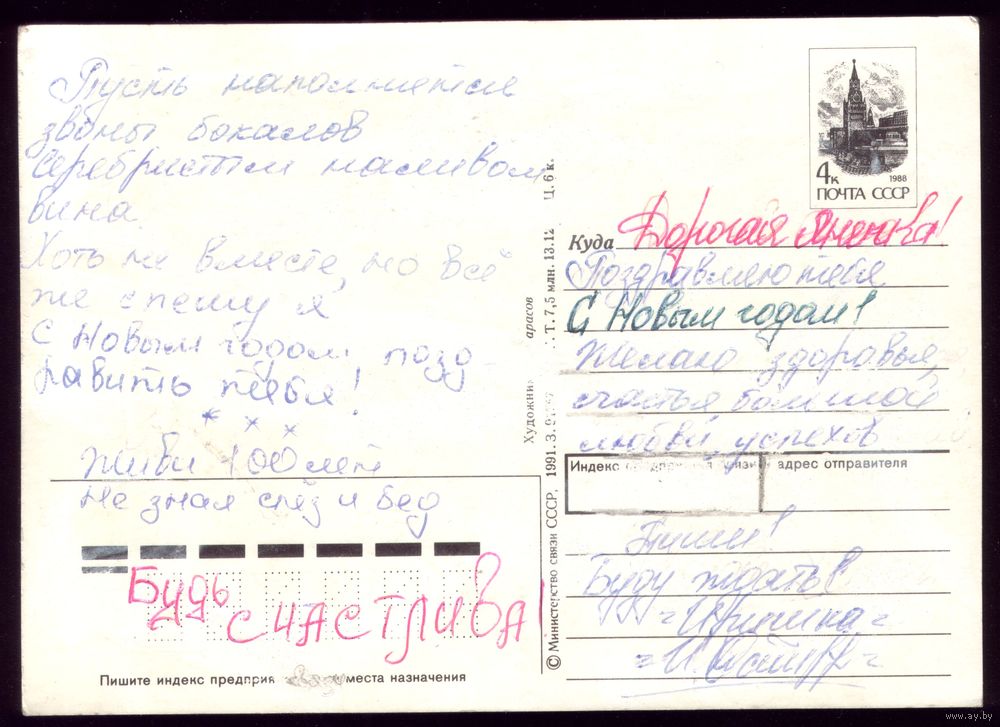 Пусть наполнятся
звоны бокалов
Серебристым наливом
вина
Хоть не вместе, но всё
же спешу я,
С Новым годом позд
равить тебя!
* * *
Живи 100 лет
Не зная слёз и бед
Будь
СЧАСТЛИВА!
Пишите индекс предприя места назначения
© Министерство связи СССР, 1991. З. 9
Художник арасов
Т. 7,5 млн. 13.12
Ц. 6 к.
4к
1988
ПОЧТА СССР
Куда Дорогая Яночка!
Поздравляю тебя
С Новым годом!
Желаю здоровья,
счастья, большой
любви, успехов
Индекс связи и адрес отправителя
Пиши!
Буду ждать!
=Иришка=
www.ay.by